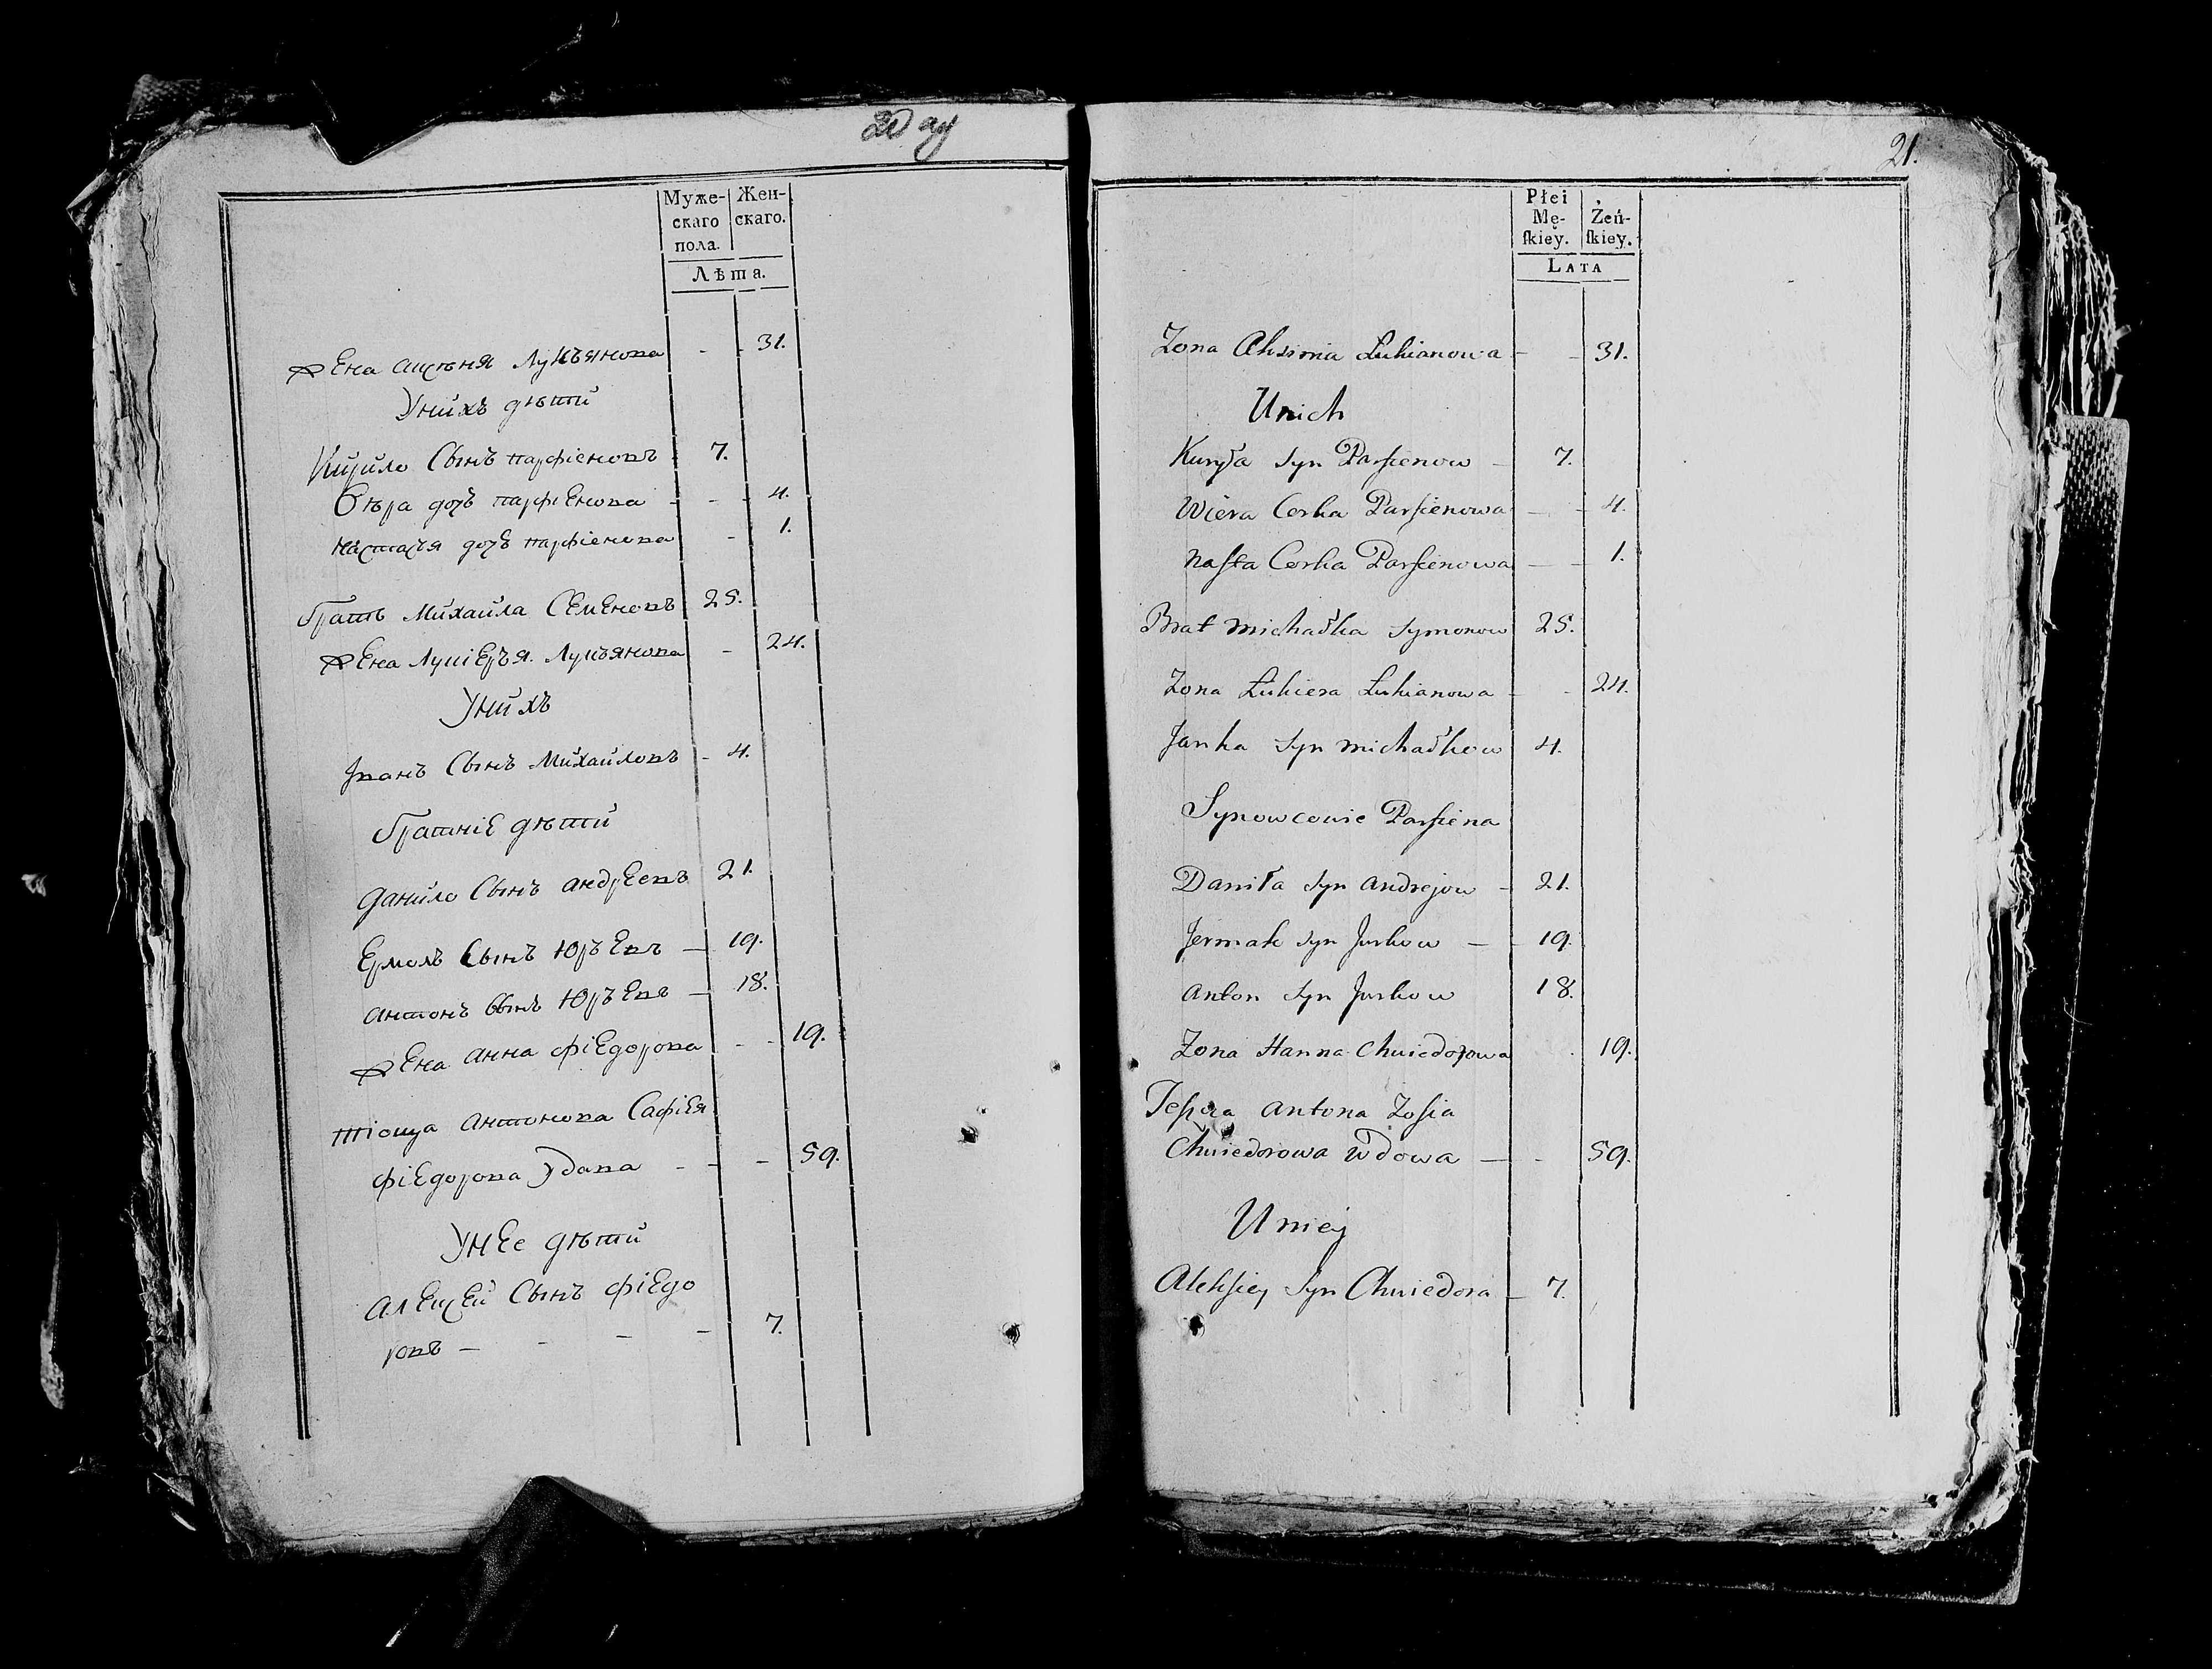 Муже-
скаго
пола.
Жен-
скаго.
Лѣта.
жена аксѣня Лукъянова - - 31.
Унихъ дѣти
Кирило Сынъ парфіеновъ 7.
Вѣра дочъ парфіенова - - - 4.
настасъя дочъ парфіенова - 1.
братъ михаила Семеновъ 25.
жена лукіеръя Лукъянова - 24.
Унихъ
Іванъ Сынъ михайловъ - 4.
братніе дѣти
данило Сынъ андреевъ 21.
Ермолъ Сынъ Юръевъ — 19.
антонъ Сынъ Юръевъ — 18.
жена анна фіедорова - - 19.
тіоща антонова Сафія
фіедорова удава - - - 59.
Унее дѣти
алексей Сынъ фіедо
ровъ — - - — 7.
21.
Płci
Mę-
ſkieў.
Żeń-
ſkiey.
Lata
Zona Aksimia Łukianowa - - 31.
Unich
Kuryła Syn Parfienow - 7.
Wiera Corka Parfienowa - - 4.
naſta Corka Parfienowa - - 1.
Brat michałka Symonow 25.
Zona Łukiera Łukianowa - - 24.
Janka Syn michałkow 4.
Synowcowie Parfiena
Daniła Syn andrejow - 21.
Jermak Syn Jurkow — - 19.
anton Syn Jurkow 18.
Zona Hanna Chwiedorowa 19.
antona Zoſia
Chwiedorowa wdowa — - 59.
Uniej
Alekſiej Syn Chwiedora - 7.